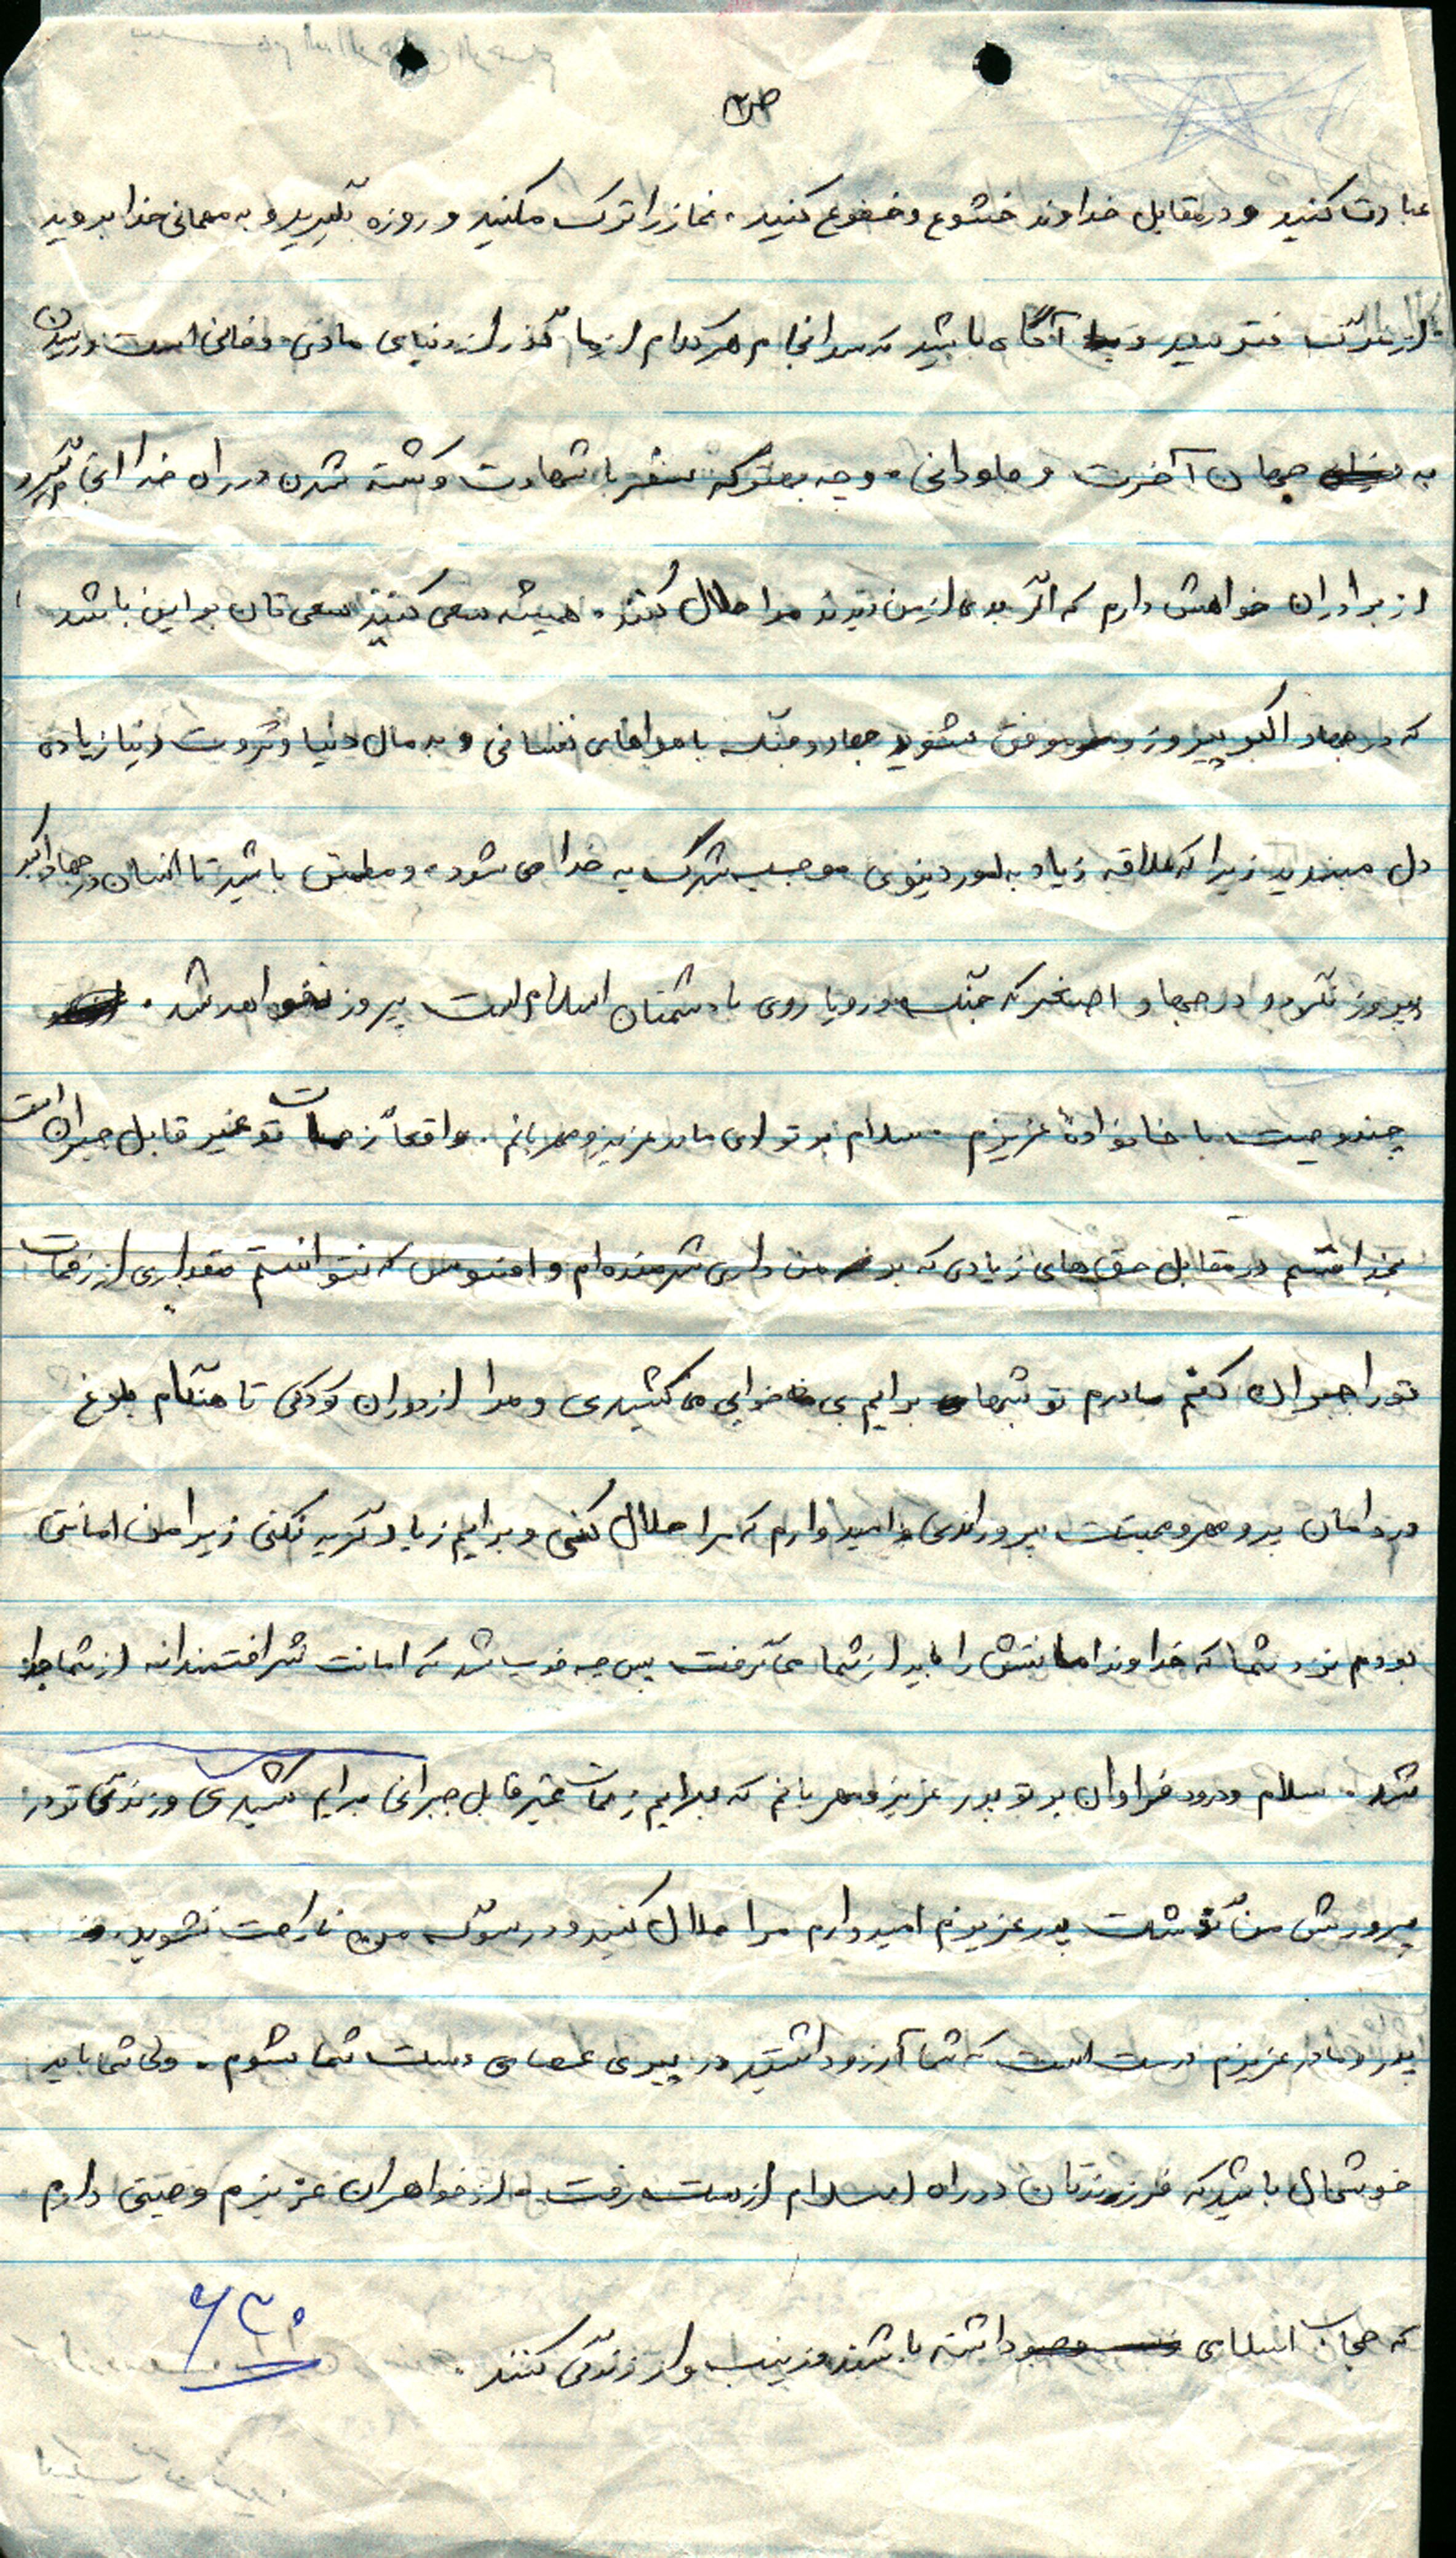 ص۲
عبادت کنید و در مقابل خداوند خشوع و خضوع کنید. نماز را ترک مکنید و روزه بگیرید و به مهمانی خدا بروید
از مرگ نترسید و آگاه باشید که سرانجام هر کدام از ما گذر از دنیای مادی و فانی است و رسیدن
به جهان آخرت و جاودانی. و چه بهتر که سفر با شهادت و کشته شدن در راه خدا انجام گیرد
از برادران خواهش دارم که اگر بدی از من دیدند مرا حلال کنند. همیشه سعی کنید سعی تان بر این باشد
که در جهاد اکبر پیروز و موفق بشوید جهاد و جنگ با هواهای نفسانی و به مال دنیا و ثروت دنیا زیاده
دل مبندید زیرا که علاقه زیاد به امور دنیوی موجب شرک به خدا می شود. و مطمئن باشید تا انسان در جهاد اکبر
پیروز نگردد در جهاد اصغر که جنگ و رویا روی با دشمنان اسلام است پیروز نخواهد شد.
چند وصیت با خانوادهٔ عزیزم. سلام بر تو ای مادر عزیز و مهربانم. واقعاً زحمات تو غیر قابل جبران است
بخدا قسم در مقابل حق های زیادی که بر من داری شرمنده ام و افسوس که نتوانستم مقداری از زحمات
تو را جبران کنم مادرم تو شبها برایم بی خوابی می کشیدی و مرا از دوران کودکی تا هنگام بلوغ
در دامان پر و مهر و محبتت پروراندی و امیدوارم که مرا حلال کنی و برایم زیاد گریه نکنی زیرا من امانتی
بودم نزد شما که خداوند امانتش را باید از شما می گرفت پس چه خوب شد که امانت شرافتمندانه از شما جدا
شد. سلام و درود فراوان بر تو پدر عزیز و مهربانم که برایم زحمات غیر قابل جبرانی برایم کشیدی و زندگی تو در
پرورش من گذشت پدر عزیزم امیدوارم مرا حلال کنید و در سوگ من ناراحت نشوید.
پدر و مادر عزیزم درست است که شما آرزو داشتید در پیری عصای دست شما بشوم. ولی شما باید
خوشحال باشید که فرزندتان در راه اسلام از دست رفت. از خواهران عزیزم وصیتی دارم
که حجاب اسلامی داشته باشند و زینب وار زندگی کنند.